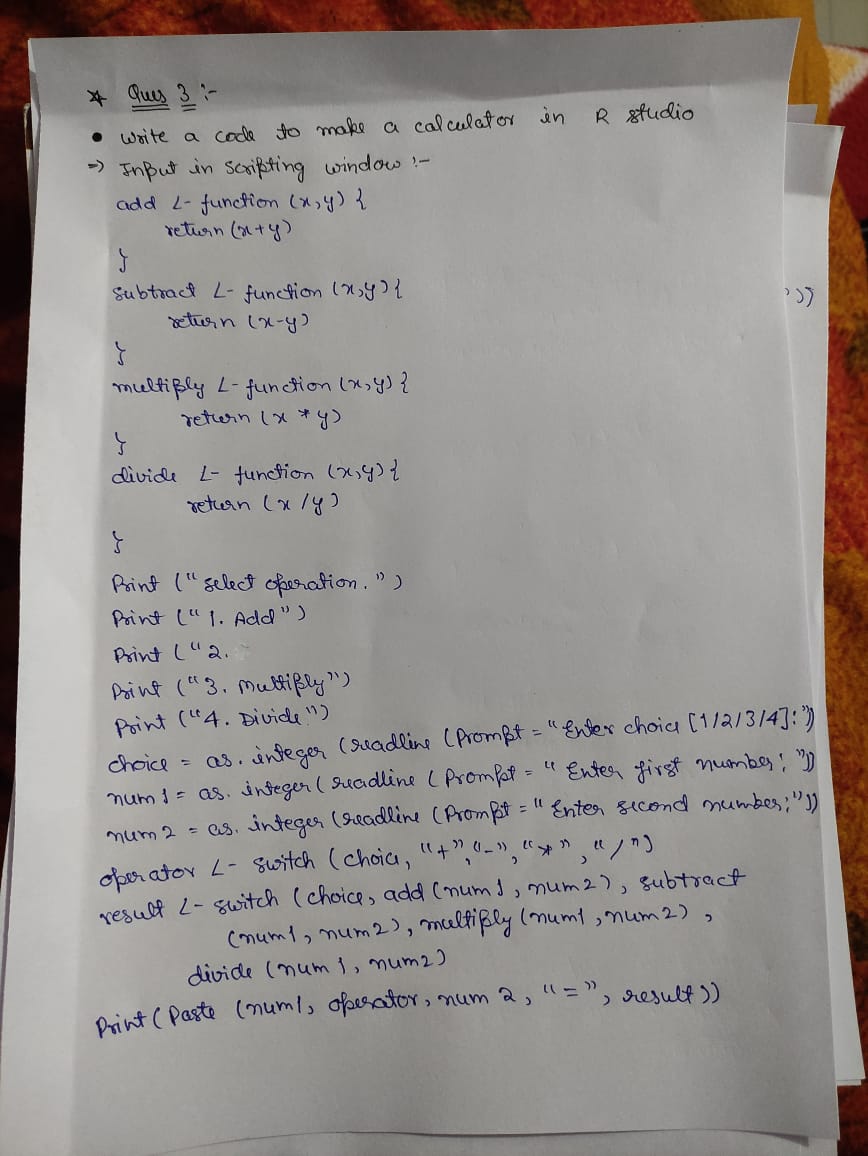 * Ques 3 :-
• Write a code to make a calculator in R studio
=> Input in scripting window :-
add <- function (x,y) {
return (x+y)
}
subtract <- function (x,y) {
return (x-y)
}
multiply <- function (x,y) {
return (x * y)
}
divide <- function (x,y) {
return (x /y)
}
Print ("select operation.")
Print ("1. Add")
Print ("2.
Print ("3. multiply")
Print ("4. Divide")
choice = as. integer (readline (Prompt = "Enter choice [1/2/3/4]:"))
num1 = as. integer (readline (Prompt = "Enter first number: "))
num2 = as. integer (readline (Prompt = "Enter second number:"))
operator <- switch (choice, "+", "-", "*", "/")
result <- switch (choice, add (num1, num2), subtract
(num1, num2), multiply (num1, num2),
divide (num1, num2)
Print (Paste (num1, operator, num 2, "=", result))